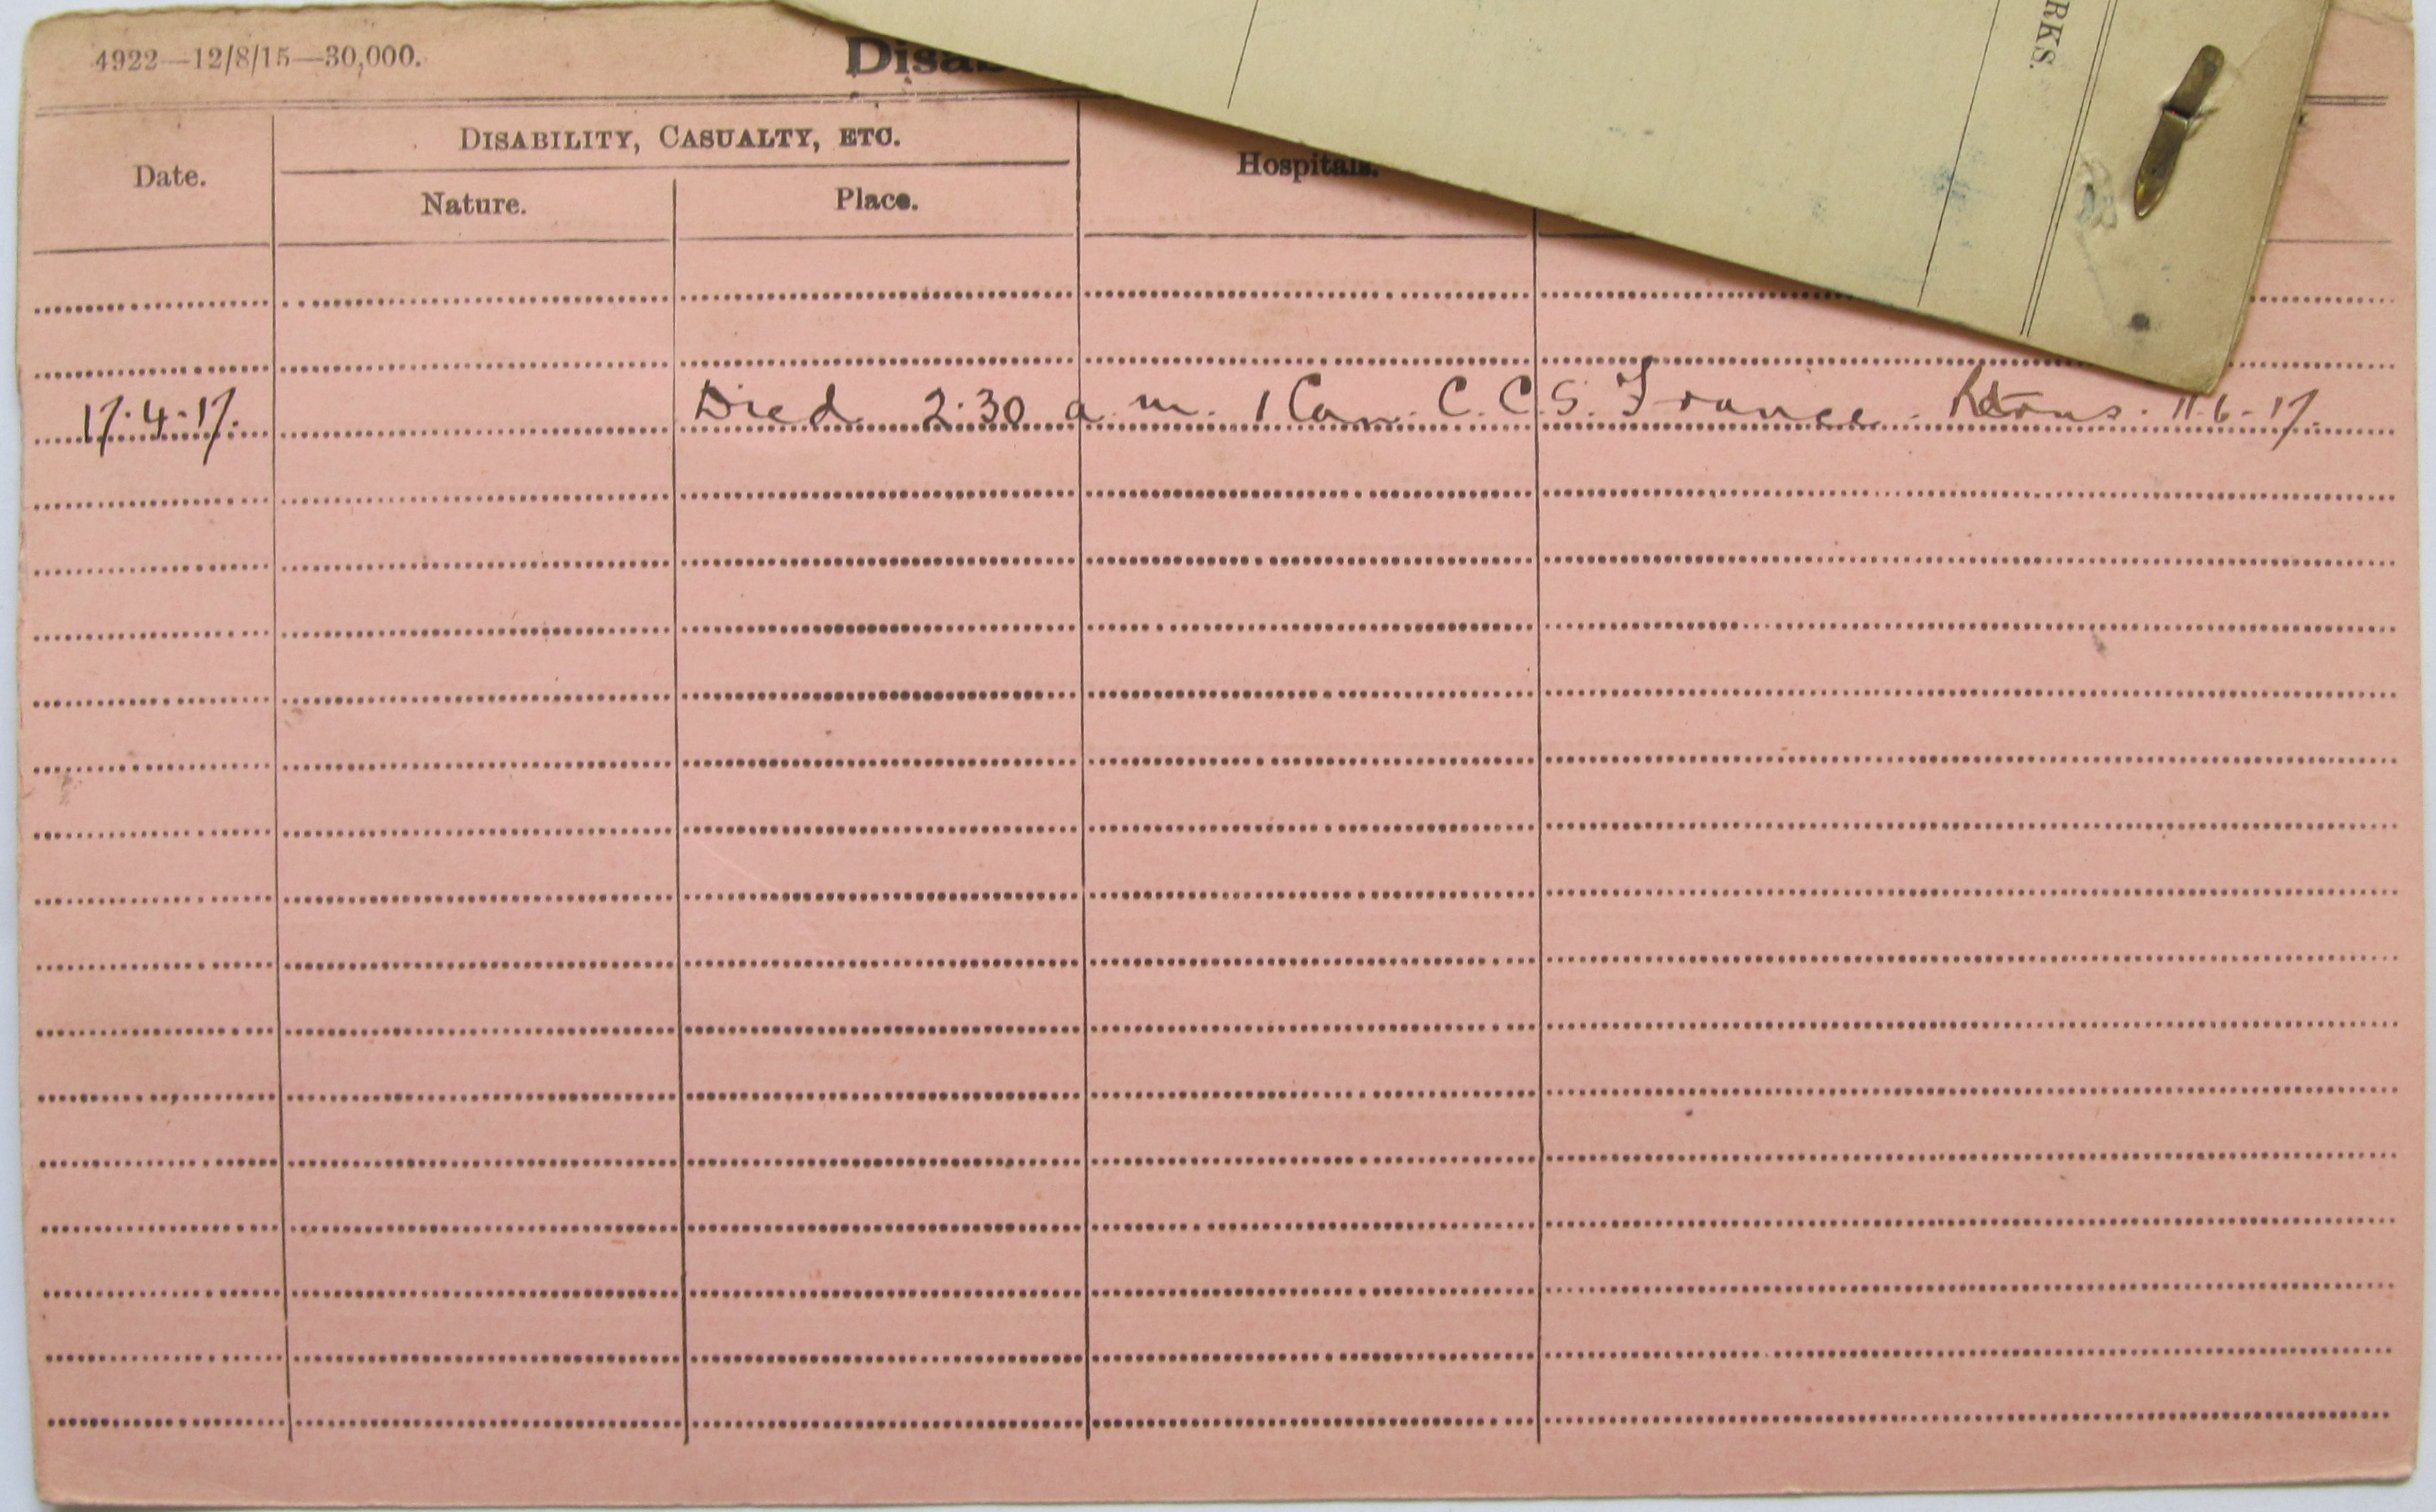 4922—12/8/15—30,000.
RKS.
DISABILITY, CASUALTY, ETC.
Date.
Hospitals.
Nature.
Place.
17.4.17. Died 2.30 a.m. 1 Can. C.C.S. France. 11.6.17.